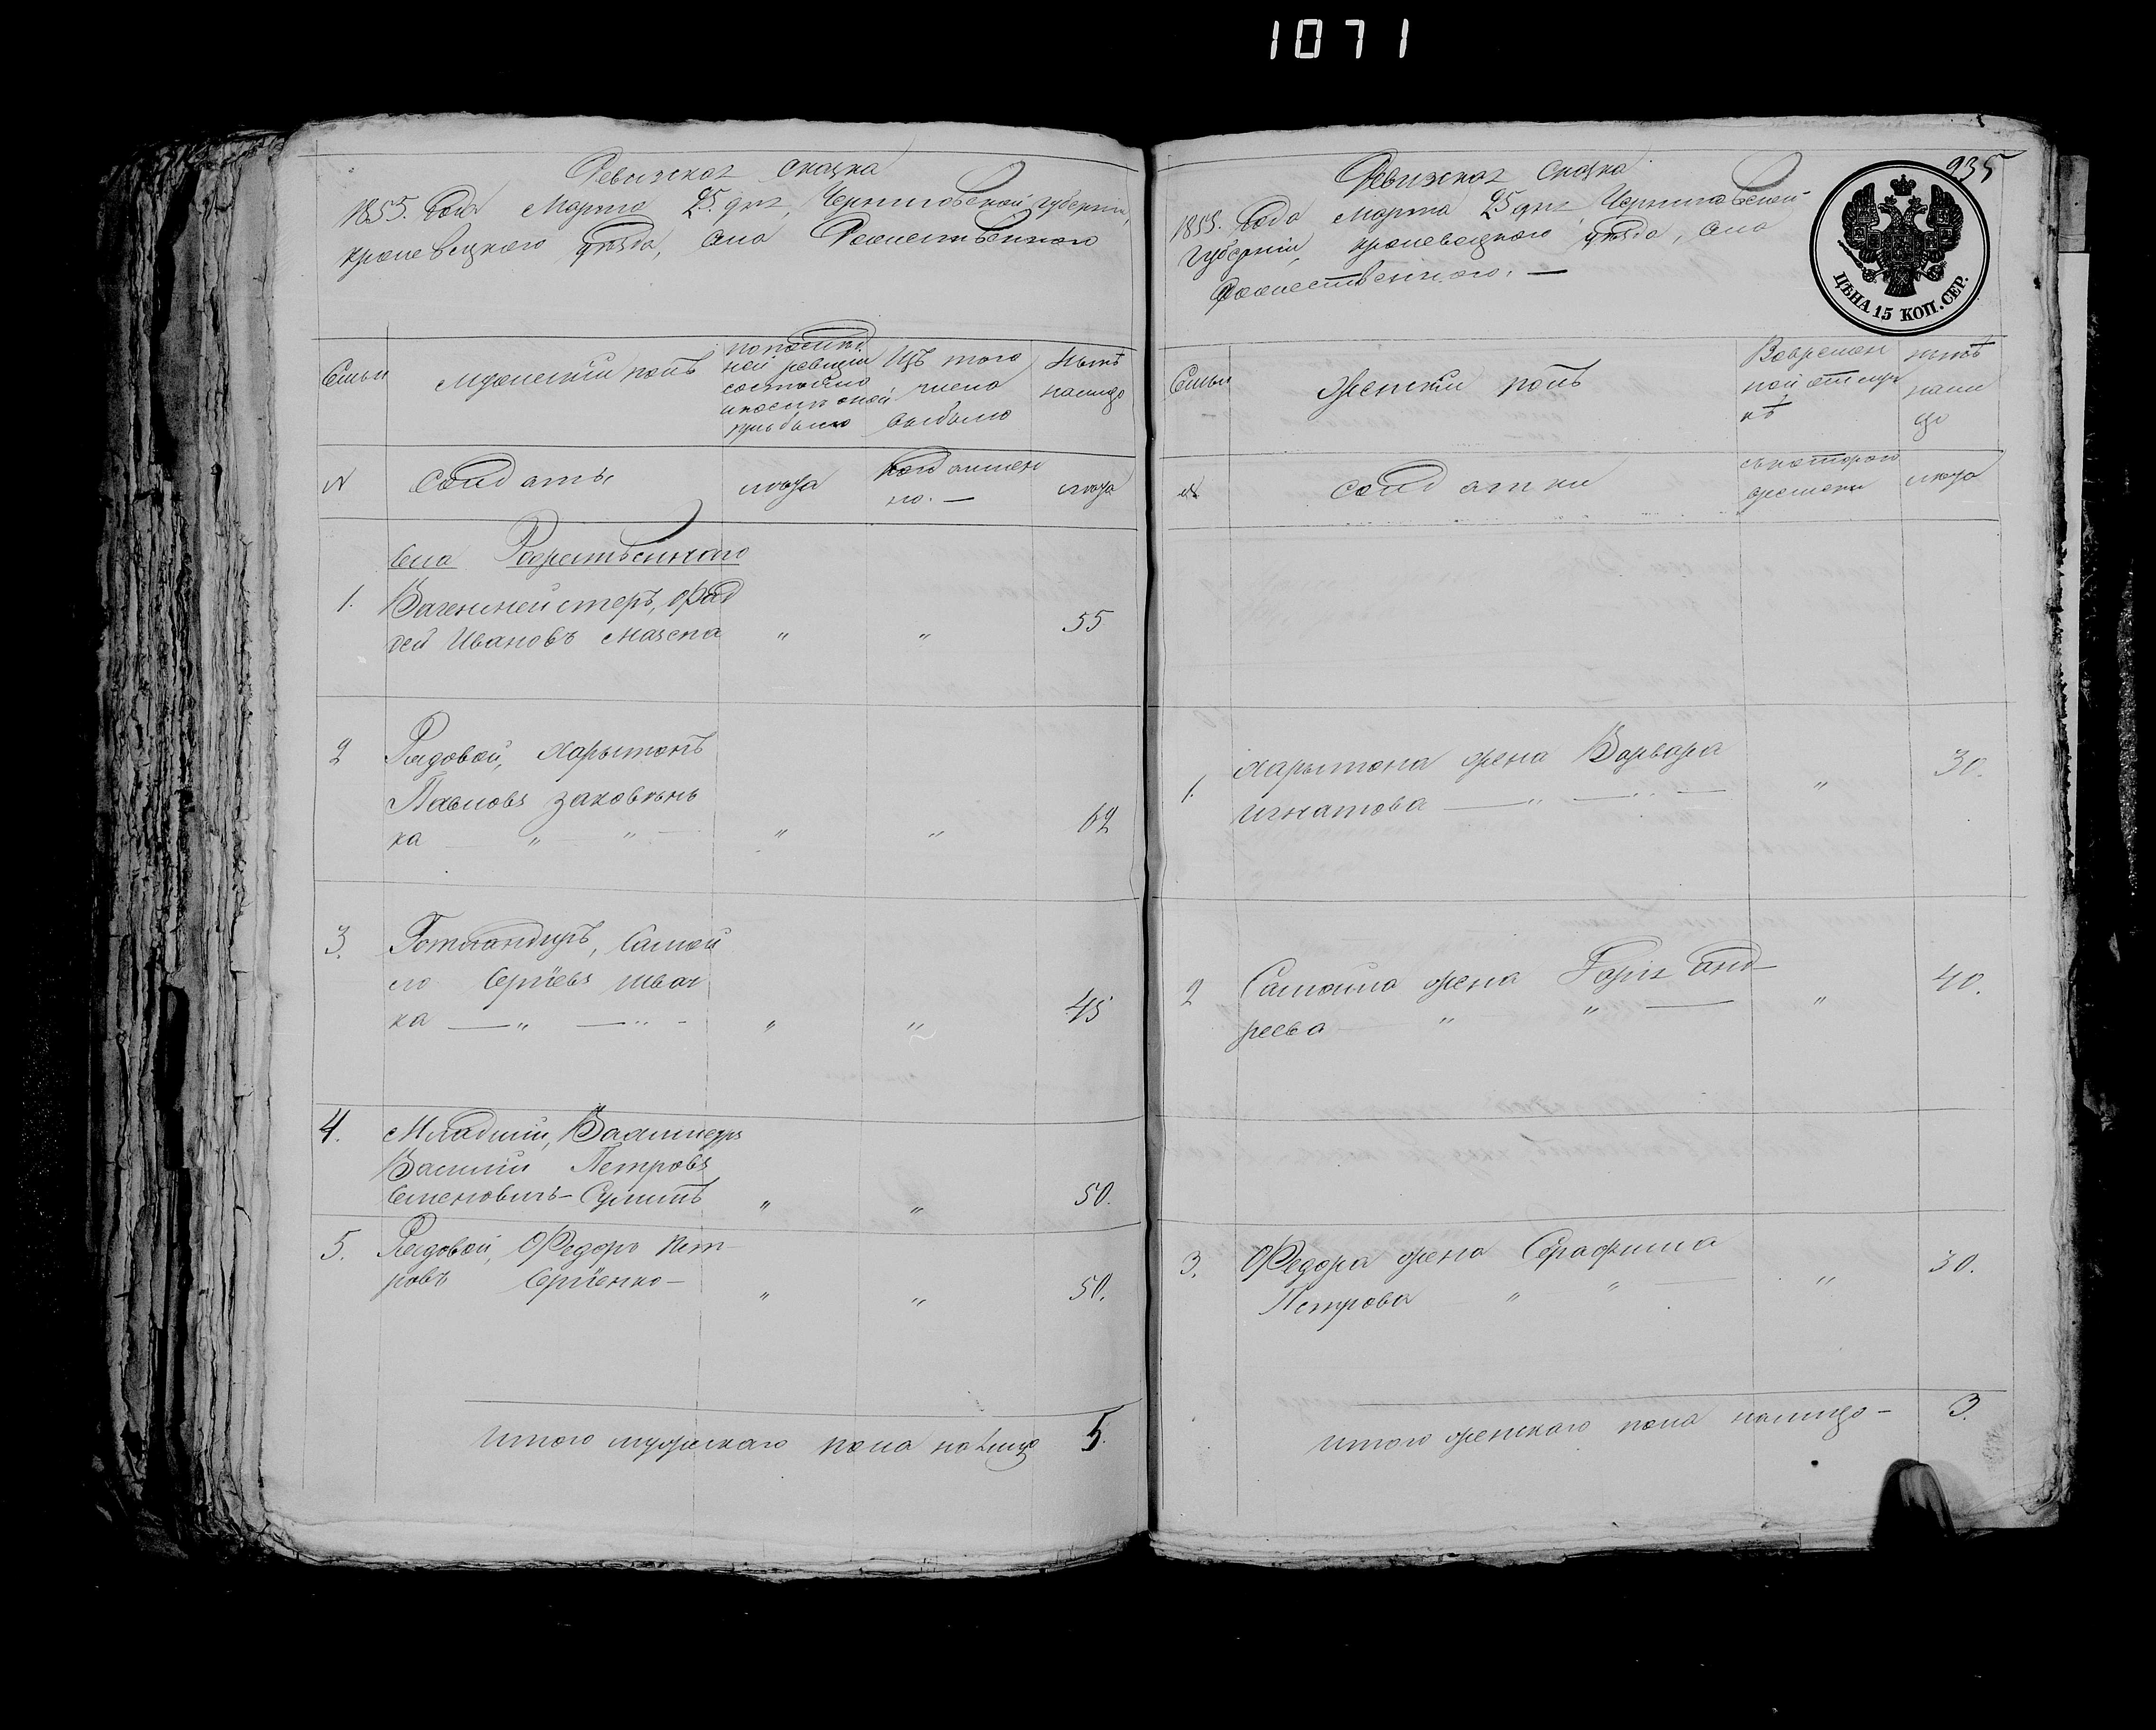 1071
Ревизская сказка
1855. Года Марта 25. дня, Черниговской губернии,
кролевецкого уезда, села Рожественного
Семьи
Мужеский полъ
по послед
ней ревизии
состояло
и после оной
прибыло
Изъ того
числа
выбыло
Ныне
налицо
N
Солдаты
лета
когда именно
но. —
лета
Села Рожественного
1. Вагенмейстеръ, Фад
дей Ивановъ Мазепа " " 55
2 Рядовой, Харытонъ
Павловъ
ка " " " " 62
3. Самой
ло Сергіевъ Швач
ка — " — " - " " 45
4. Младший, Вахмистръ
Василий Петровъ
Семеновичъ- " " 50.
5. Рядовой, Федоръ Пет
ровъ Сергіенко — " " 50.
Итого мужескаго пола налицо 5.
935
Ревизская Сказка
1855. Года Марта 25 дня Черниговской
Губерніи, кролевецкого уезда, села
Рожественного. —
ЦѢНА 15 КОП. СЕР.
Семьи
Женский полъ
Во времен
ной отлуч
кѣ
нынѣ
нали
цо
N
Солдатки
съ которого
времени
лета
1. Харытона жена Варвара
Игнатова — " — " — " 30.
2 Самойла жена Анд
реева " " — " 40.
3. Федора жена Серафима
Петрова " " — " 30.
Итого женскаго пола налицо - 3.